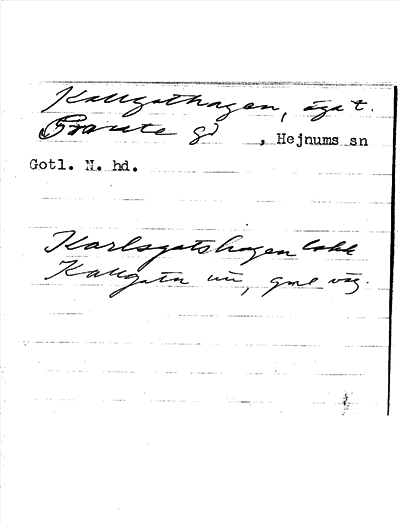 Kallgathagen, äga t.
Präste gd, Hejnums sn
Gotl. N. hd.
Karlsgatshagen
Kallgatu nu, gml väg.